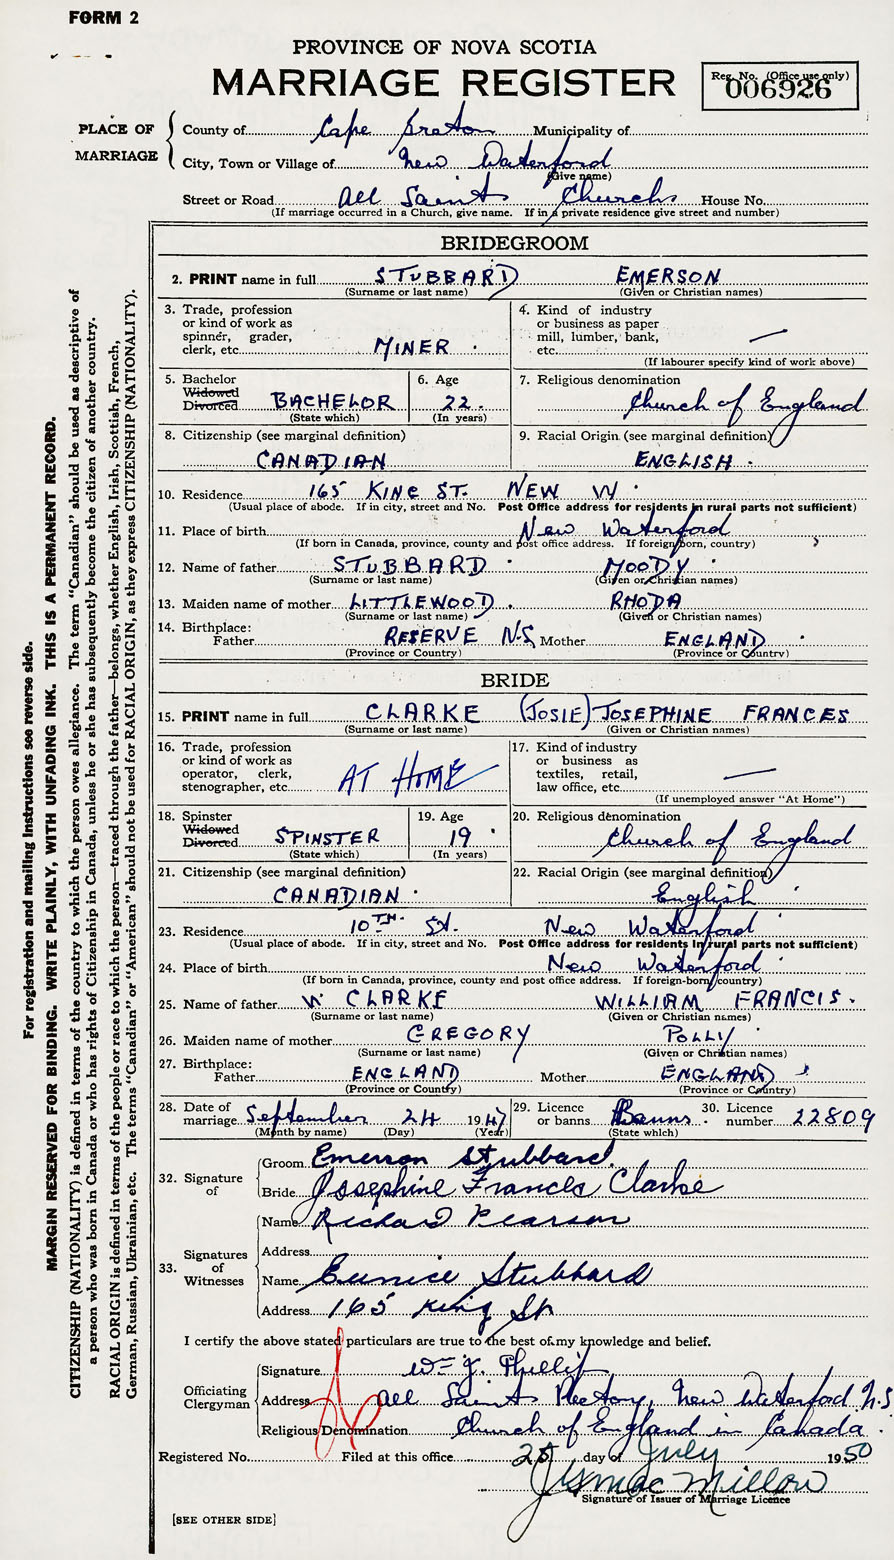 FORM 2
PROVINCE OF NOVA SCOTIA
MARRIAGE REGISTER
Reg. No. (Office use only)
006926
PLACE OF MARRIAGE
County of Cape Breton Municipality of
City, Town or Village of New Waterford
(Give name)
Street or Road All Saints Church House No.
(If marriage occurred in a Church, give name. If in a private residence give street and number)
BRIDEGROOM
2. PRINT name in full STUBBARD EMERSON
(Surname or last name) (Given or Christian names)
3. Trade, profession or kind of work as spinner, grader, clerk, etc. MINER
4. Kind of industry or business as paper mill, lumber, bank, etc. —
(If labourer specify kind of work above)
5. Bachelor Widowed Divorced BACHELOR
(State which)
6. Age 22.
(In years)
7. Religious denomination
Church of England
8. Citizenship (see marginal definition)
CANADIAN
9. Racial Origin (see marginal definition)
ENGLISH
10. Residence 165 KING ST. NEW W
(Usual place of abode. If in city, street and No. Post Office address for residents in rural parts not sufficient)
11. Place of birth New Waterford
(If born in Canada, province, county and post office address. If foreign born, country)
12. Name of father STUBBARD MOODY
(Surname or last name) (Given or Christian names)
13. Maiden name of mother LITTLEWOOD RHODA
(Surname or last name) (Given or Christian names)
14. Birthplace:
Father RESERVE N.S. Mother ENGLAND
(Province or Country) (Province or Country)
BRIDE
15. PRINT name in full CLARKE (JOSIE) JOSEPHINE FRANCES
(Surname or last name) (Given or Christian names)
16. Trade, profession or kind of work as operator, clerk, stenographer, etc. AT HOME
17. Kind of industry or business as textiles, retail, law office, etc. —
(If unemployed answer "At Home")
18. Spinster Widowed Divorced SPINSTER
(State which)
19. Age 19
(In years)
20. Religious denomination
Church of England
21. Citizenship (see marginal definition)
CANADIAN
22. Racial Origin (see marginal definition)
English
23. Residence 10TH St. New Waterford
(Usual place of abode. If in city, street and No. Post Office address for residents in rural parts not sufficient)
24. Place of birth New Waterford
(If born in Canada, province, county and post office address. If foreign-born, country)
25. Name of father W CLARKE WILLIAM FRANCIS.
(Surname or last name) (Given or Christian names)
26. Maiden name of mother GREGORY POLLY
(Surname or last name) (Given or Christian names)
27. Birthplace:
Father ENGLAND Mother ENGLAND
(Province or Country) (Province or Country)
28. Date of marriage September 24 1947
(Month by name) (Day) (Year)
29. Licence or banns Banns
(State which)
30. Licence number 22809
32. Signature of
Groom Emerson Stubbard
Bride Josephine Frances Clarke
33. Signatures of Witnesses
Name Richard Pearson
Address
Name Eunice Stubbard
Address 165 King St
I certify the above stated particulars are true to the best of my knowledge and belief.
Officiating Clergyman
Signature Wm J. Phillips
Address All Saints Rectory, New Waterford N.S
Religious Denomination Church of England in Canada
Registered No. Filed at this office 25 day of July 1950
Signature of Issuer of Marriage Licence
[SEE OTHER SIDE]
For registration and mailing instructions see reverse side.
MARGIN RESERVED FOR BINDING. WRITE PLAINLY, WITH UNFADING INK. THIS IS A PERMANENT RECORD.
CITIZENSHIP (NATIONALITY) is defined in terms of the country to which the person owes allegiance. The term "Canadian" should be used as descriptive of
a person who was born in Canada or who has rights of Citizenship in Canada, unless he or she has subsequently become the citizen of another country.
RACIAL ORIGIN is defined in terms of the people or race to which the person—traced through the father—belongs, whether English, Irish, Scottish, French,
German, Russian, Ukrainian, etc. The terms "Canadian" or "American" should not be used for RACIAL ORIGIN, as they express CITIZENSHIP (NATIONALITY).